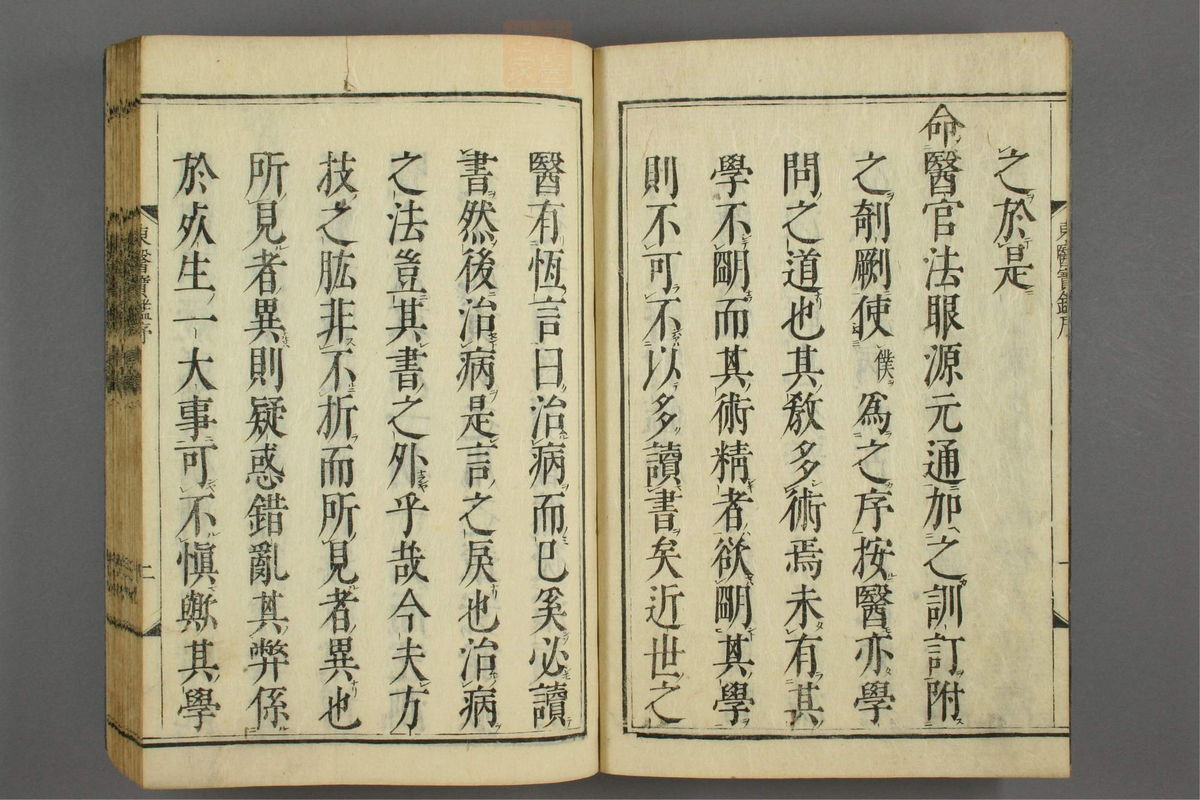 之於是
命醫官法眼源元通加之訓訂附
之剞劂使僕爲之序按醫亦學
問之道也其敎多術焉未有其
學不明而其術精者欲明其學
則不可不以多讀書矣近世之
醫有恆言曰治病而已奚必讀
書然後治病是言之戾也治病
之法豈其書之外乎哉今夫方
技之肱非不折而所見者異也
所見者異則疑惑錯亂其弊係
於死生一大事可不愼歟其學
東醫寶鑑序
一
東醫寶鑑序
二